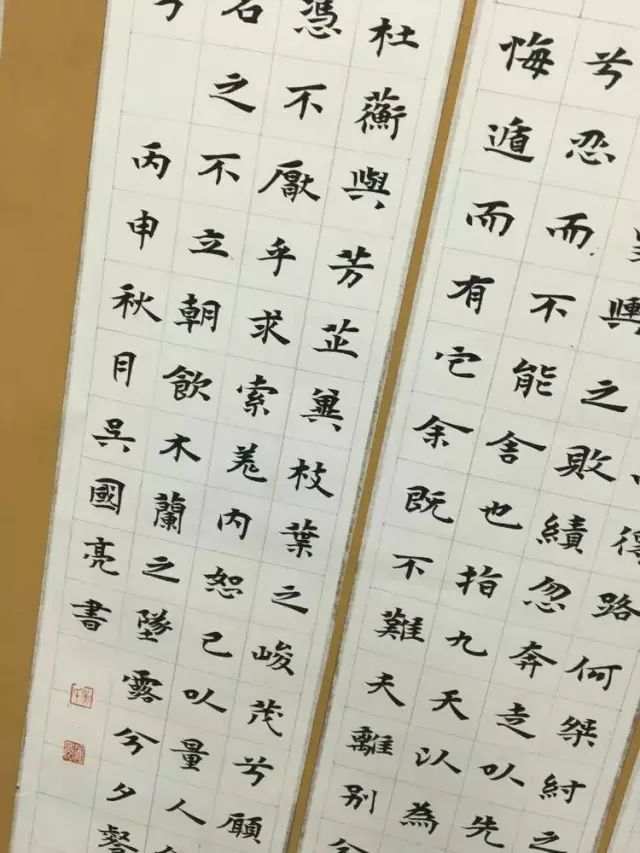 得路何桀紂之
輿之敗績忽奔走以先
兮忍而不能舍也指九天以為
悔遁而有它余既不難夫離別兮
杜蘅與芳芷冀枝葉之峻茂兮願
憑不厭乎求索羌内恕己以量人
名之不立朝飲木蘭之墜露兮夕餐
丙申秋月吳國亮書